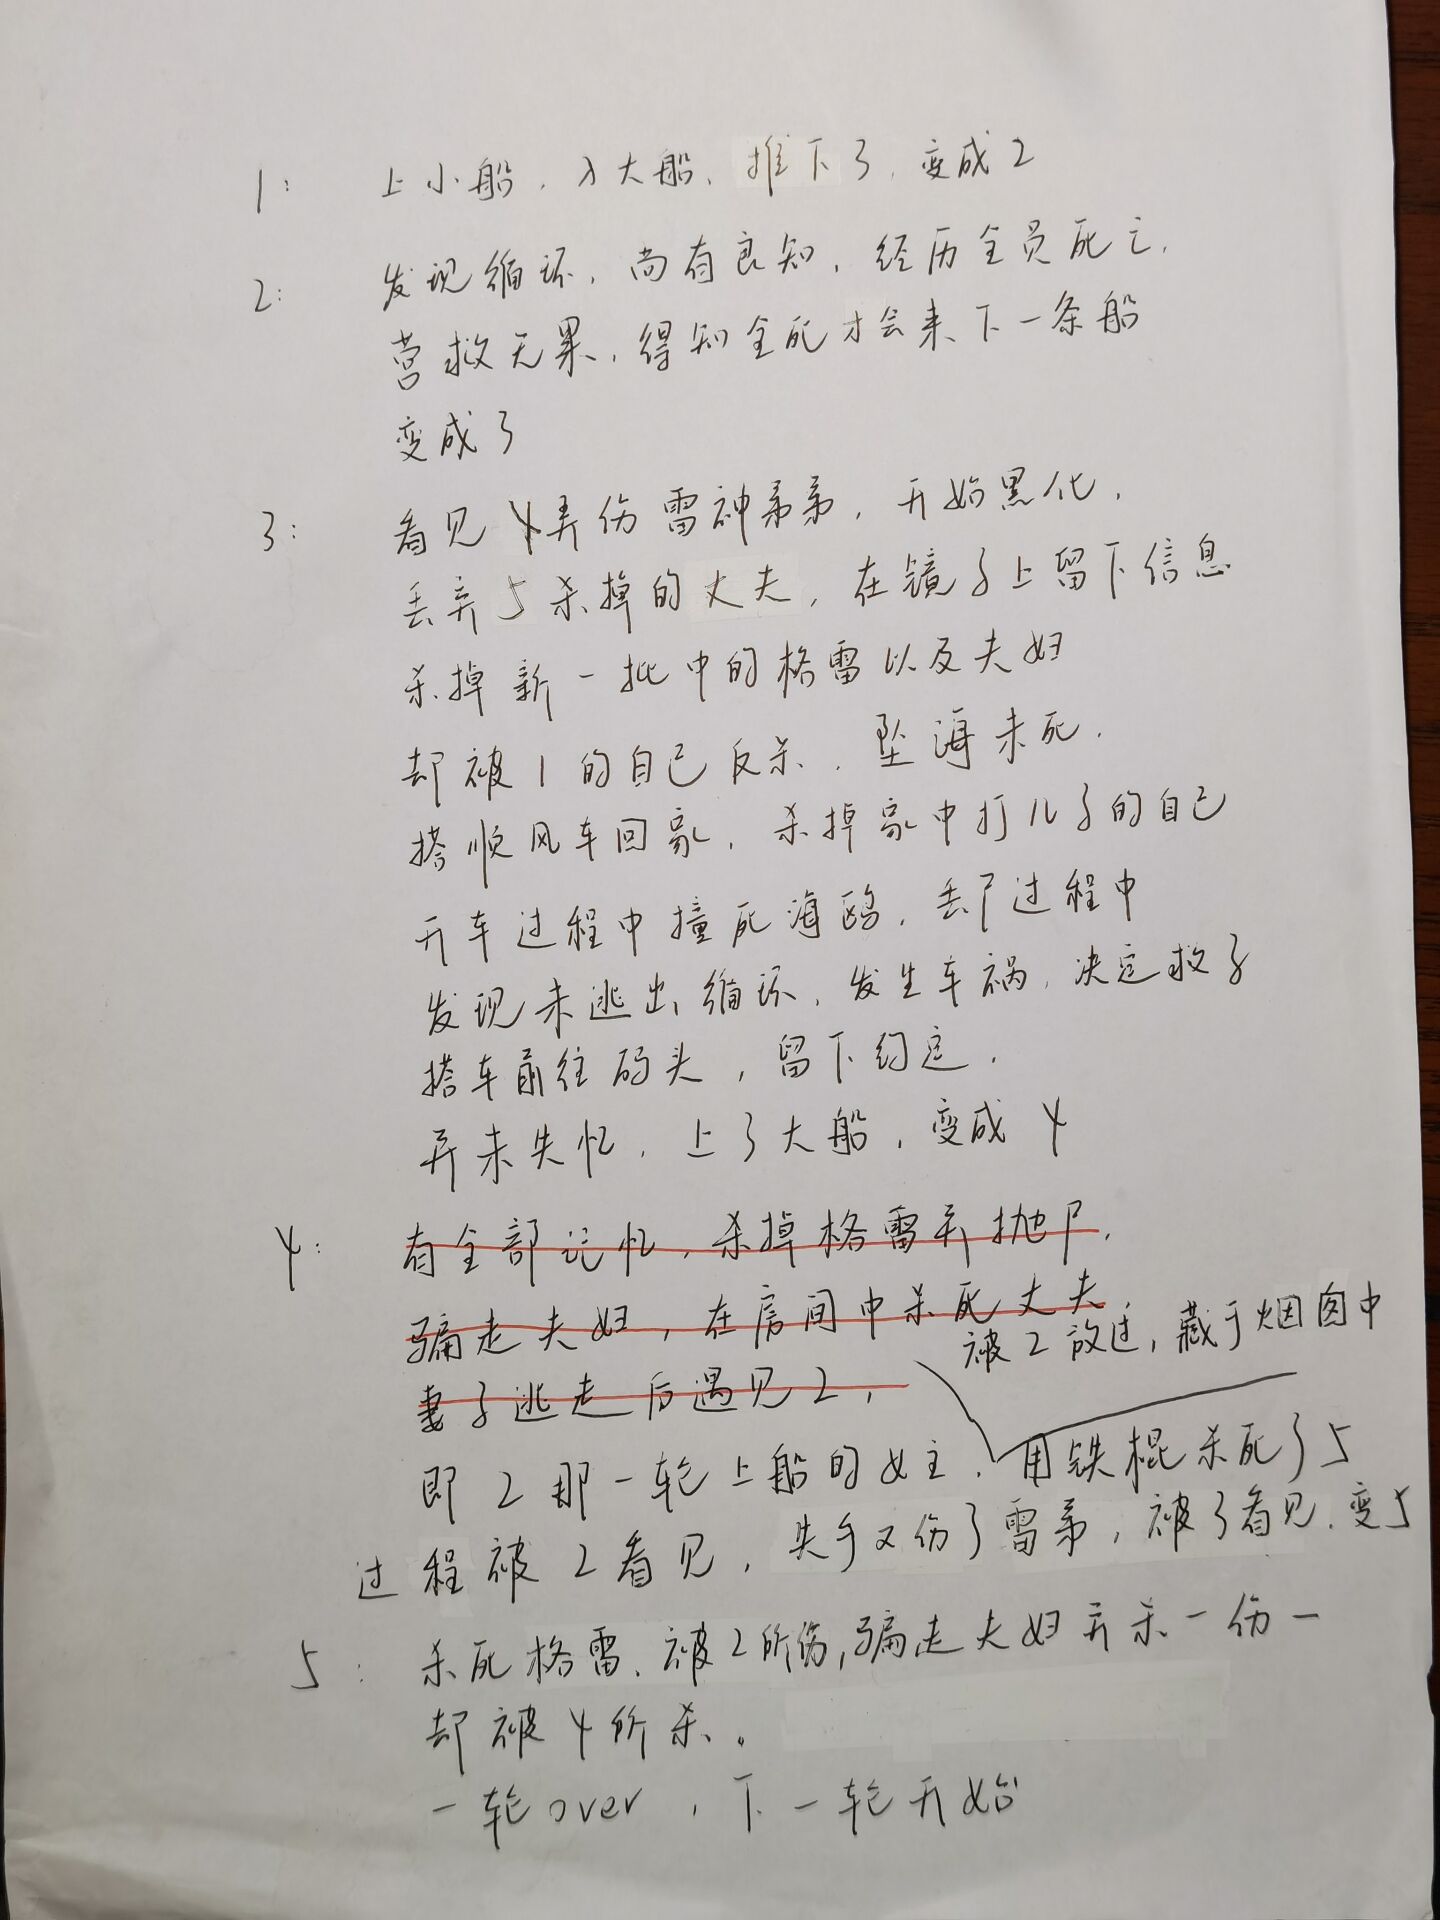 1: 上小船,入大船,推下3,变成2
2: 发现循环,尚有良知,经历全员死亡,
营救无果,得知全死才会来下一条船
变成3
3: 看见4弄伤雷神弟弟,开始黑化,
丢弃5杀掉的丈夫,在镜子上留下信息
杀掉新一批中的格雷以及夫妇
却被1的自己反杀,坠海未死.
搭顺风车回家,杀掉家中打儿子的自己
开车过程中撞死海鸥,丢尸过程中
发现未逃出循环,发生车祸,决定救子
搭车前往码头,留下约定.
并未失忆,上了大船,变成4
4: 有全部记忆,杀掉格雷并抛尸,
骗走夫妇,在房间中杀死丈夫
妻子逃走后遇见2,
被2放过,藏于烟囱中
即2那一轮上船的女主,用铁棍杀死了5
过程被2看见,失手又伤了雷弟,被3看见,变5
5: 杀死格雷,被2所伤,骗走夫妇并杀一伤一
却被4所杀。
一轮over,下一轮开始